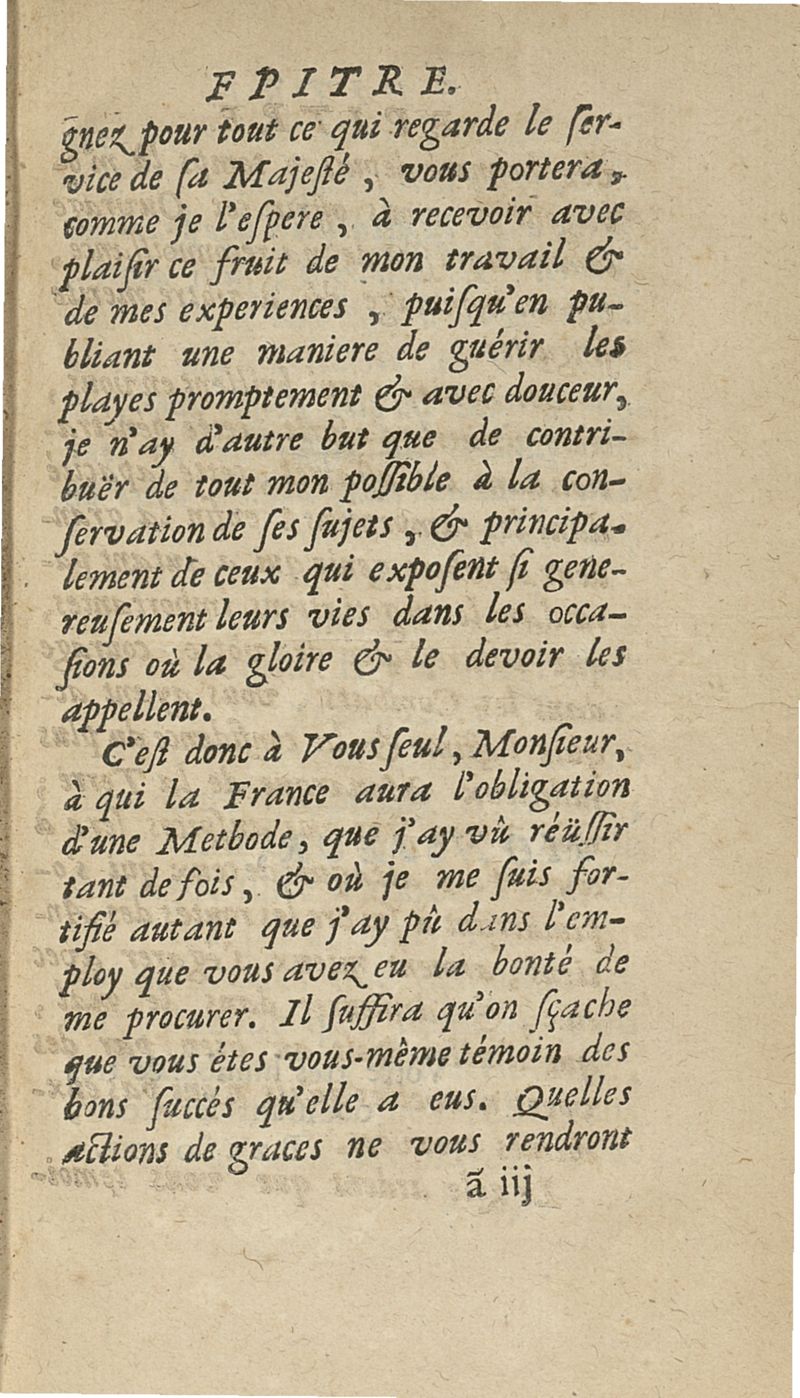 EPITRE.
gnez pour tout ce qui regarde le ſer-
vice de ſa Majeſté, vous portera,
comme je l'eſpere, à recevoir avec
plaiſir ce fruit de mon travail &
de mes experiences, puiſqu'en pu-
bliant une maniere de guérir les
playes promptement & avec douceur,
je n'ay d'autre but que de contri-
buër de tout mon poſſible à la con-
ſervation de ſes ſujets, & principa-
lement de ceux qui expoſent ſi gene-
reuſement leurs vies dans les occa-
ſions où la gloire & le devoir les
appellent.
C'eſt donc à Vous ſeul, Monſieur,
à qui la France aura l'obligation
d'une Methode, que j'ay vû réüſſir
tant de fois, & où je me ſuis for-
tifié autant que j'ay pû dans l'em-
ploy que vous avez eu la bonté de
me procurer. Il ſuffira qu'on ſçache
que vous étes vous-même témoin des
bons ſuccés qu'elle a eus. Quelles
actions de graces ne vous rendront
ã iij